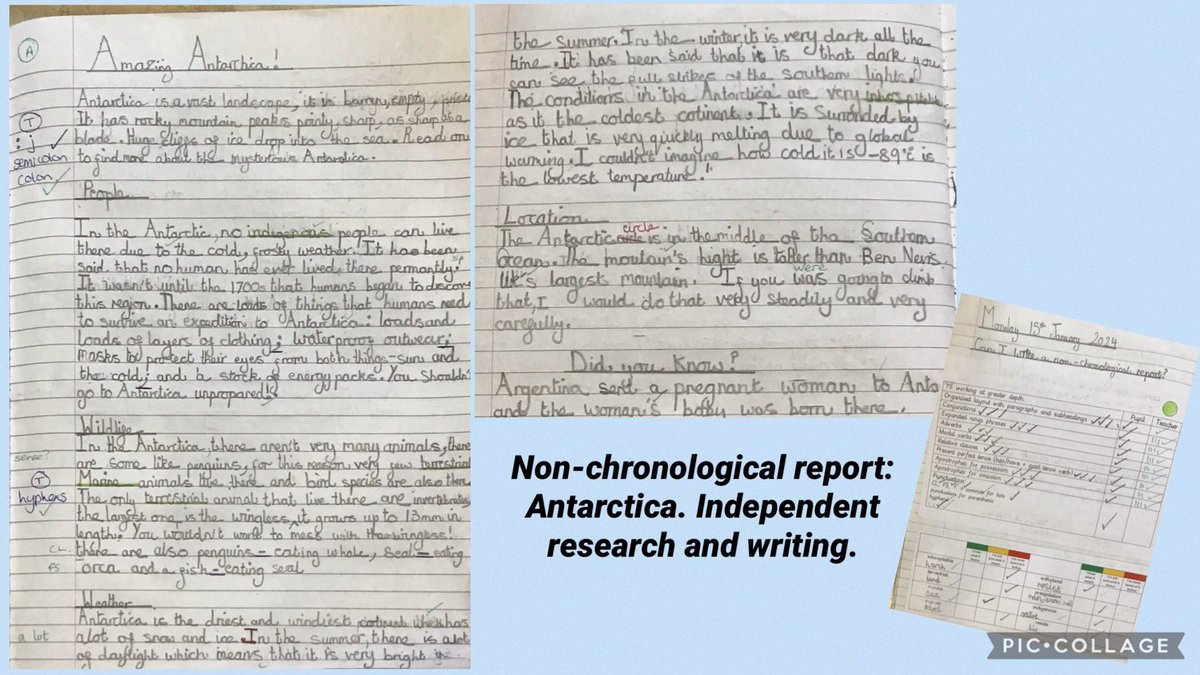 A
Amazing Antarthica!
Antarctica is a vast landscape, it is barren, empty,
It has rocky mountain peaks pointy, sharp, as sharp as a
blade. Huge cliffs of ice drop into the sea. Read on
to find more about the mysterious Antarctica.
T
: ; ✓
semicolon
colon
People
In the Antarctic, no indegenous people can live
there due to the cold, frosty weather. It has been
said that no human had ever lived there permantly.
sp
It wasn't until the 1700s that humans began to discover
this region. There are loads of things that humans need
to survive an expedition to Antarctica: loads and
loads of layers of clothing; waterproof outwear;
masks to protect their eyes from both things - sun and
the cold; and a stock of energy packs. You shouldn't
go to Antartica unprepared!
Wildlife
In the Antarctica, there aren't very many animals, there
sense?
are some like penguins, for this reason very few terrestrial
Marine animals live there and bird species are also there
T
hyphens
The only terrestrial animal that live there are invertebrates,
the largest one is the wingless, it grows up to 13mm in
length. You wouldn't want to mess with the wingless!
CL
there are also penguins - eating whale, seal - eating
PS
orca and a fish - eating seal
Weather
Antarctica is the driest and windiest continent which has
a lot
alot of snow and ice. In the summer, there is alot
of daylight which means that it is very bright in
the summer. In the winter it is very dark all the
time. It has been said that it is that dark you
can see the full strikes of the southern lights.
The conditions in the Antarctica are very
as it the coldest cotinent. It is Surounded by
ice that is very quickly melting due to global
warming. I couldn't imagine how cold it is -89°c is
the lowest temperature!
Location
The Antarctic circle is in the middle of the Southern
ocean. The moutain's hight is taller than Ben Nevis
UK's largest mountain. If you was going to climb
were
that, I would do that very steadily and very
carefully.
Did you know?
Argentina sent a pregnant woman to Anta
and the woman's baby was born there.
Monday 15th January 2024
Can I write a non-chronological report?
Y5 working at greater depth
Pupil
Teacher
Organised layout with paragraphs and subheadings
Conjunctions
Expanded noun phrases
Adverbs
Modal verbs
Relative clauses
Present perfect tense (has/have + past tense verb)
Apostrophes for possession
Apostrophes for omission
Punctuation
harsh
land
sea
Non-chronological report:
Antarctica. Independent
research and writing.
PIC•COLLAGE